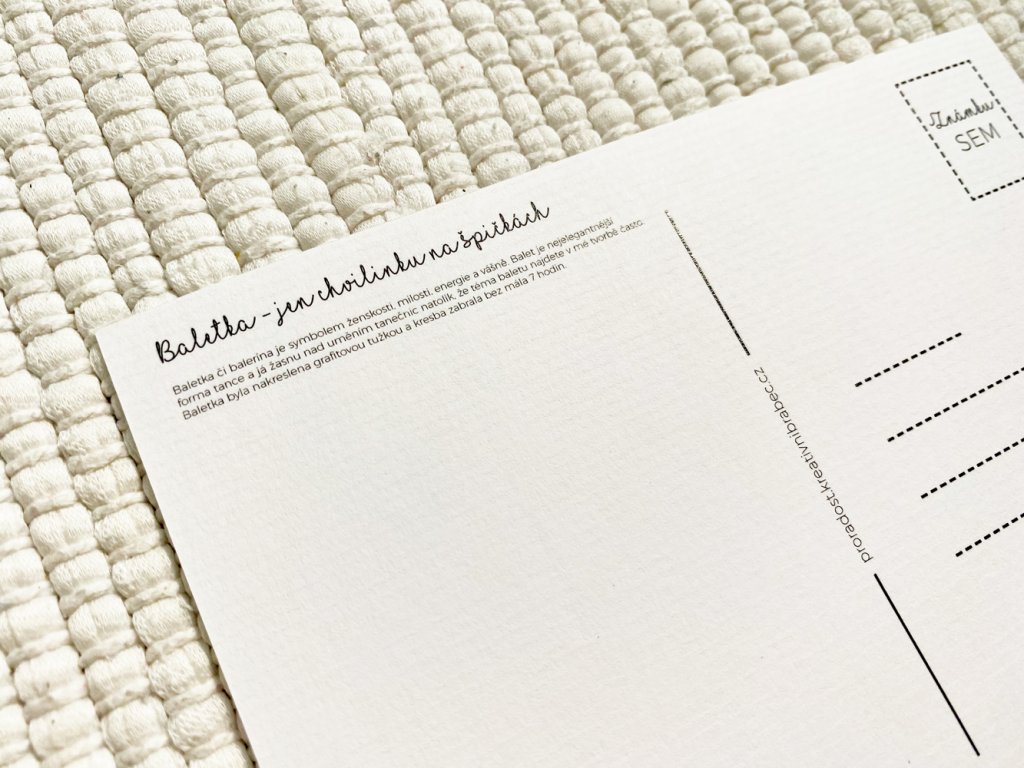 Baletka - jen chvilinku na špičkách
Baletka či balerína je symbolem ženskosti, milosti, energie a vášně. Balet je nejelegantnější
forma tance a já žasnu nad uměním tanečnic natolik, že téma baletu najdete v mé tvorbě často.
Baletka byla nakreslena grafitovou tužkou a kresba zabrala bez mála 7 hodin.
proradost.kreativnibrabec.cz
Známku
SEM